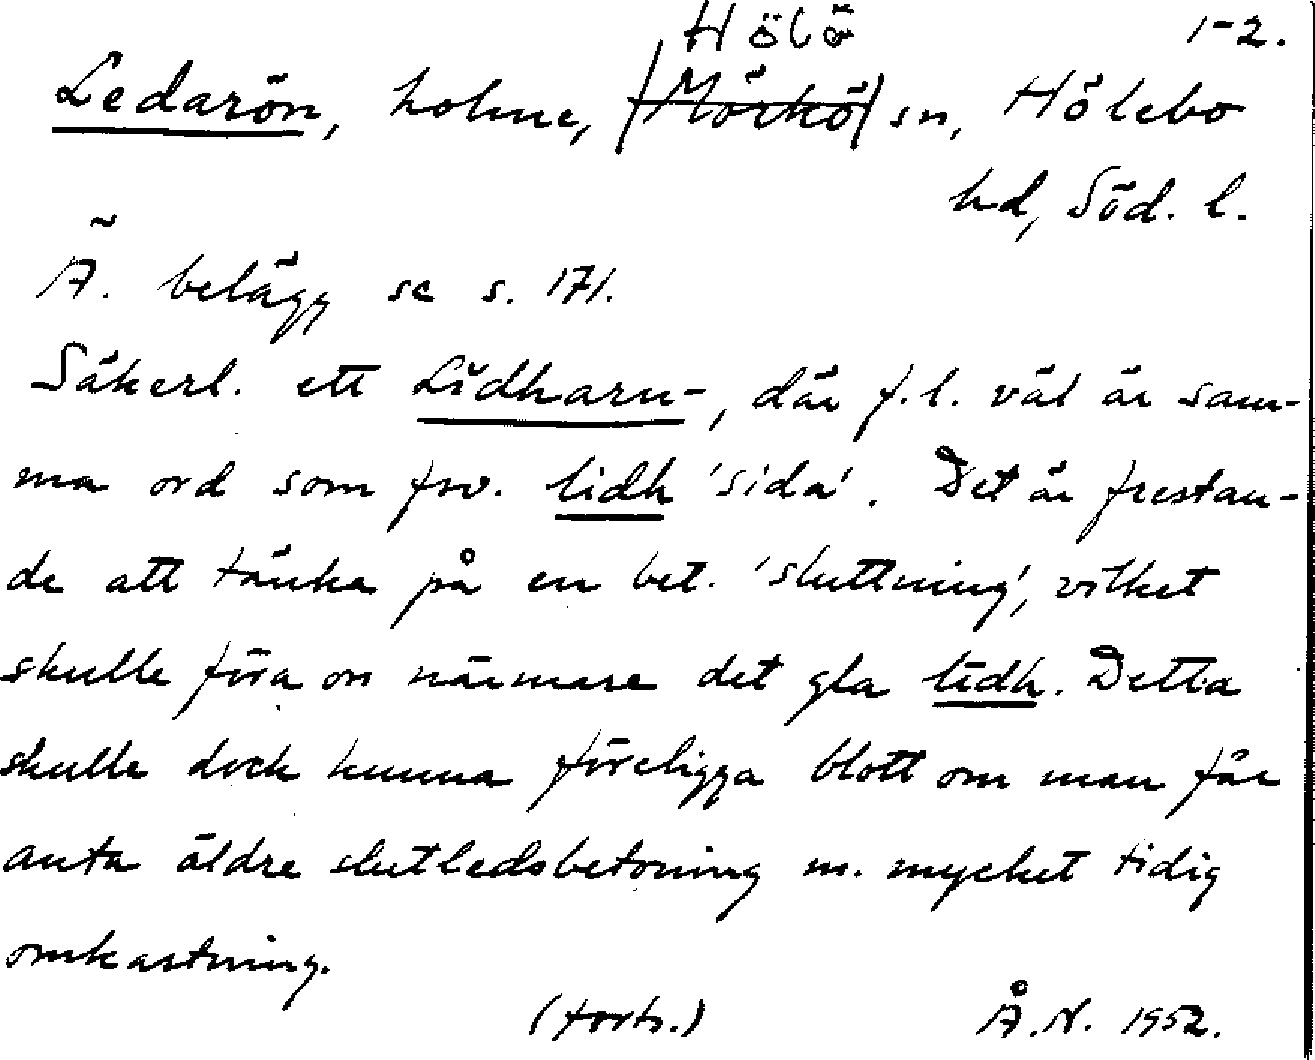 Hölö 1-2.
Ledarön, holme, (Mörkö) sn, Hölebo
hd, Söd. l.
Ä. belägg se s. 171.
Säkerl. ett Lĭdharu-, där f.l. väl är sam-
ma ord som fsv. lidh 'sida'. Det är frestan-
de att tänka på en bet. 'sluttning', vilket
skulle föra on närmare det gla līdh. Detta
skulle dock kunna föreligga blott om man får
anta äldre slutledsbetoning m. mycket tidig
omkastning.
(forts.) Å.N. 1952.